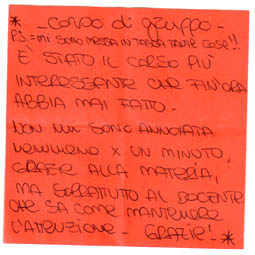 * - CORSO DI GRUPPO -
P.S. = MI SONO MESSA IN TASCA TANTE COSE!!
È STATO IL CORSO PIÙ
INTERESSANTE CHE FIN'ORA
ABBIA MAI FATTO.
NON MI SONO ANNOIATA
NEMMENO X UN MINUTO,
GRAZIE ALLA MATERIA,
MA SOPRATTUTTO AL DOCENTE
CHE SA COME MANTENERE
L'ATTENZIONE - GRAZIE! - *